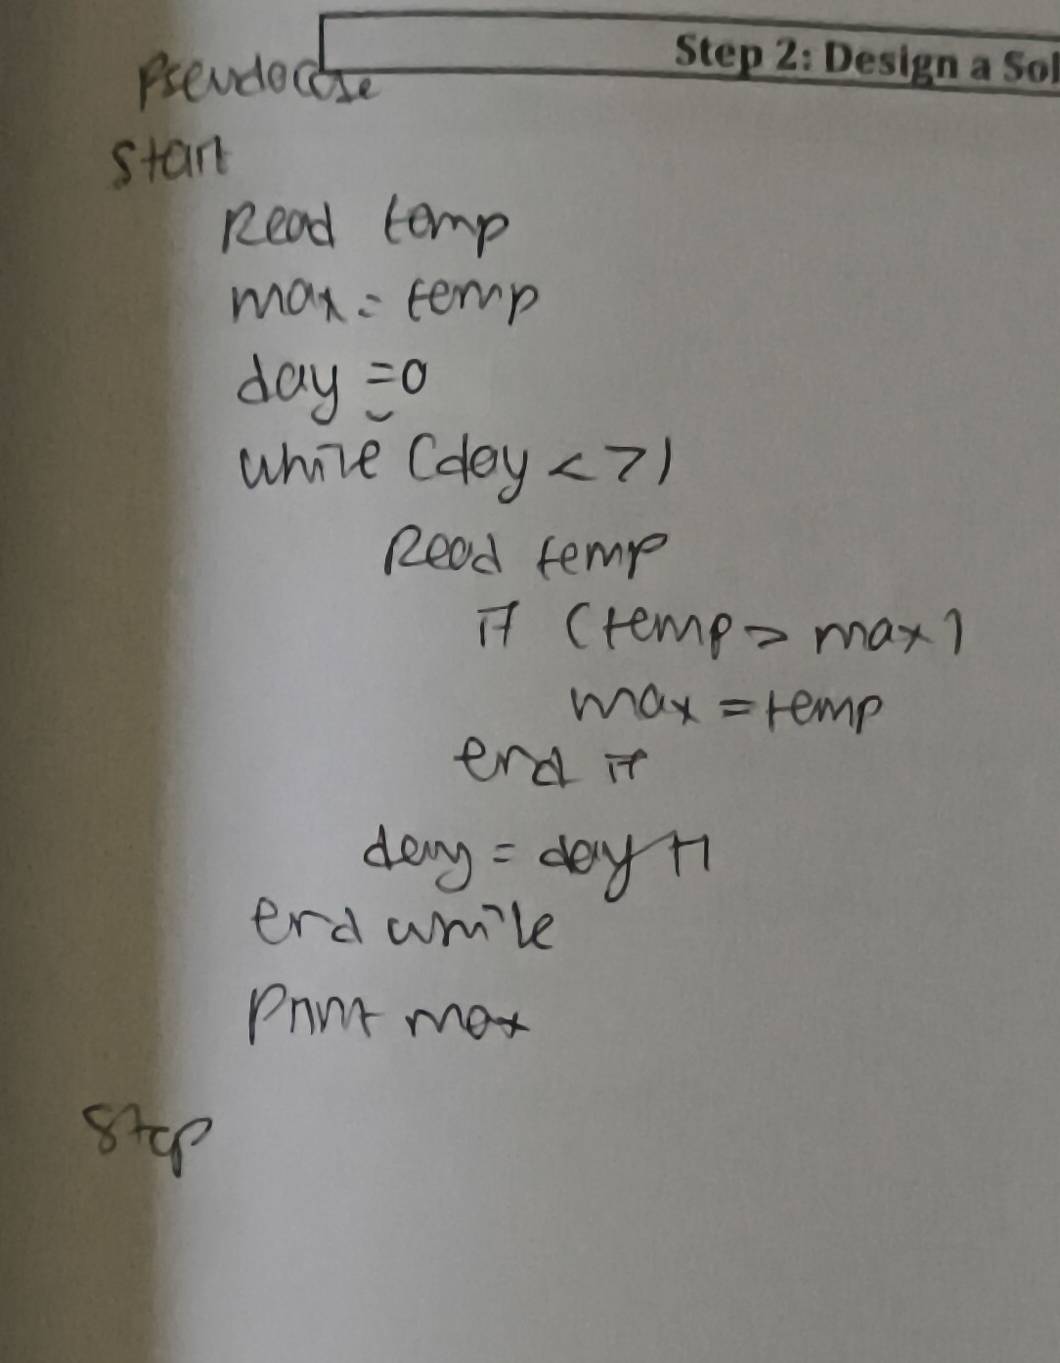 Step 2: Design a Sol
Pseudocode
Start
Read temp
max = temp
day = 0
while (day < 7)
Read temp
if (temp > max)
max = temp
end if
day = day + 1
end while
Print max
Stop